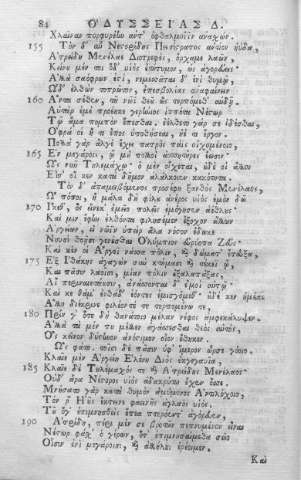 82 ὈΔΥΣΣΕΙΑΣ Δ.
Χλαῖναν πορφυρέην ἄντ' ὀφθαλμοῖϊν ἀνασχών.
155 Τὸν δ' αὖ Νεστορίδης Πεισίστρατος ἀντίον ηὔδα,
Ἀτρείδη Μενέλαε Διοτρεφὲς, ὄρχαμε λαῶν,
Κείνου μέν τοι ὅδ' υἱὸς ἐτήτυμον, ὡς ἀγορεύεις·
Ἀλλὰ σαόφρων ἐστὶ, νεμεσσᾶται δ' ἐνὶ θυμῷ
Ὧδ' ἐλθὼν τοπρῶτον, ἐπεσβολίας ἀναφαίνειν
160 Ἄντα σέθεν, τοῦ νῶϊ θεοῦ ὣς τερπόμεθ' αὐδῇ.
Αὐτὰρ ἐμὲ προέηκε γερήνιος ἱππότα Νέστωρ
Τῷ ἅμα πομπὸν ἕπεσθαι· ἐέλδετο γάρ σε ἰδέσθαι,
Ὄφρα οἱ ἤ τι ἔπος ὑποθήσεαι, ἠέ τι ἔργον.
Πολλὰ γὰρ ἄλγε' ἔχει πατρὸς παῖς οἰχομένοιο
165 Ἐν μεγάροις, ᾧ μὴ ἄλλοι ἀοσσητῆρες ἔωσιν·
Ὡς νῦν Τηλεμάχῳ ὁ μὲν οἴχεται, οὐδέ οἱ ἄλλοι
Εἴσ' οἵ κεν κατὰ δῆμον ἀλάλκοιεν κακότητα.
Τὸν δ' ἀπαμειβόμενος προσέφη ξανθὸς Μενέλαος,
Ὢ πόποι, ἦ μάλα δὴ φίλου ἀνέρος υἱὸς ἐμὸν δῶ
170 Ἵκεθ', ὃς εἵνεκ' ἐμεῖο πολεῖς ἐμόγησεν ἀέθλους·
Καί μιν ἔφην ἐλθόντα φιλησέμεν ἔξοχον ἄλλων
Ἀργείων, εἰ νῶϊν ὑπεὶρ ἅλα νόστον ἔδωκε
Νηυσὶ θοῇσι γενέσθαι Ὀλύμπιος εὐρύοπα Ζεύς·
Καί κέν οἱ Ἄργεϊ νάσσα πόλιν, καὶ δώματ' ἔτευξα,
175 Ἐξ Ἰθάκης ἀγαγὼν σὺν κτήμασι καὶ τέκεϊ ᾧ,
Καὶ πᾶσιν λαοῖσι, μίαν πόλιν ἐξαλαπάξας,
Αἳ περιναιετάουσιν, ἀνάσσονται δ' ἐμοὶ αὐτῷ·
Καί κε θάμ' ἐνθάδ' ἐόντες ἐμισγόμεθ'· οὐδέ κεν ἡμέας
Ἄλλο διέκρινε φιλέοντέ τε τερπομένω τε,
180 Πρίν γ' ὅτε δὴ θανάτοιο μέλαν νέφος ἀμφεκάλυψεν.
Ἀλλὰ τὰ μέν που μέλλεν ἀγάσσεσθαι θεὸς αὐτὸς,
Ὃς κεῖνον δύστηνον ἀνόστιμον οἶον ἔθηκεν.
Ὣς φάτο· τοῖσι δὲ πᾶσιν ὑφ' ἵμερον ὦρσε γόοιο.
Κλαῖε μὲν Ἀργείη Ἑλένη Διὸς ἐκγεγαυῖα,
185 Κλαῖε δὲ Τηλέμαχός τε καὶ Ἀτρείδης Μενέλαος·
Οὐδ' ἄρα Νέστορος υἱὸς ἀδακρύτω ἔχεν ὄσσε.
Μνήσατο γὰρ κατὰ θυμὸν ἀμύμονος Ἀντιλόχοιο,
Τόν ῥ' Ἠοῦς ἔκτεινε φαεινῆς ἀγλαὸς υἱός.
Τοῦ ὅγ' ἐπιμνησθεὶς ἔπεα πτερόεντ' ἀγόρευεν,
190 Ἀτρείδη, πέρι μέν σε βροτῶν πεπνυμένον εἶναι
Νέστωρ φάσχ' ὁ γέρων, ὅτ' ἐπιμνησαίμεθα σεῖο
Οἷσιν ἐνὶ μεγάροισι, καὶ ἀλλήλους ἐρέοιμεν.
Καὶ